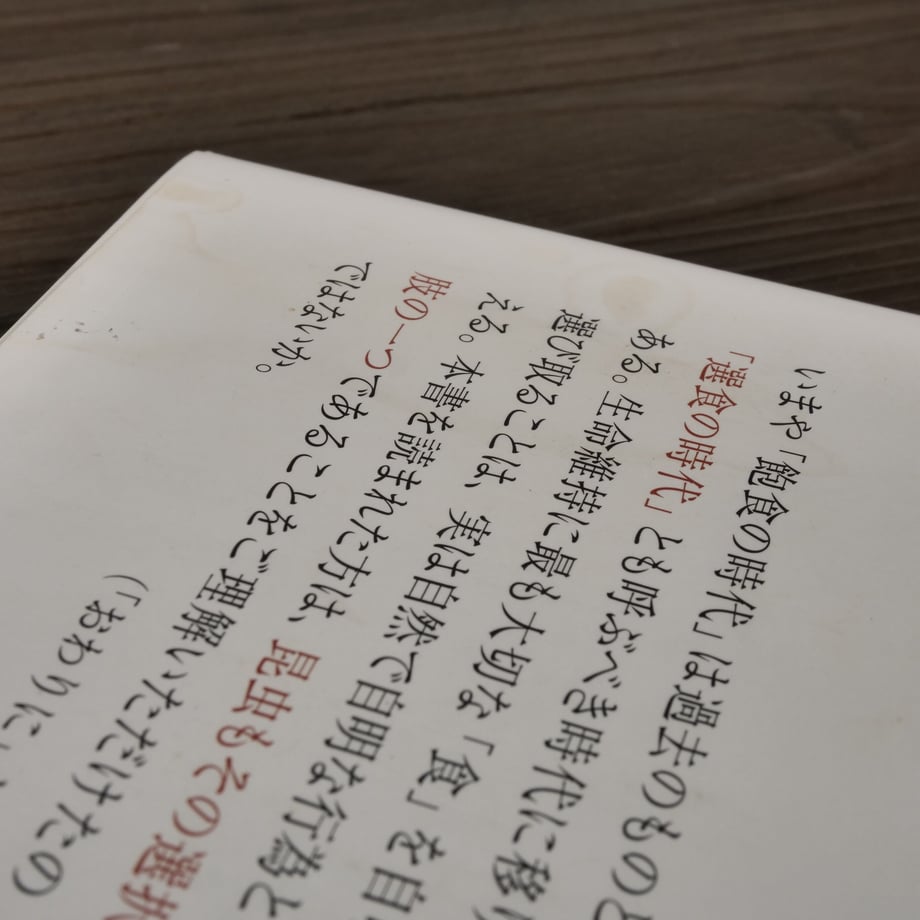 いまや「飽食の時代」は過去のものと
「選食の時代」とも呼ぶべき時代に移り
ある。生命維持に最も大切な「食」を自
選び取ることは、実は自然で自明な行為と
える。本書を読まれた方は、昆虫もその選択
肢の一つであることをご理解いただけたの
ではないか。
（「おわりに」